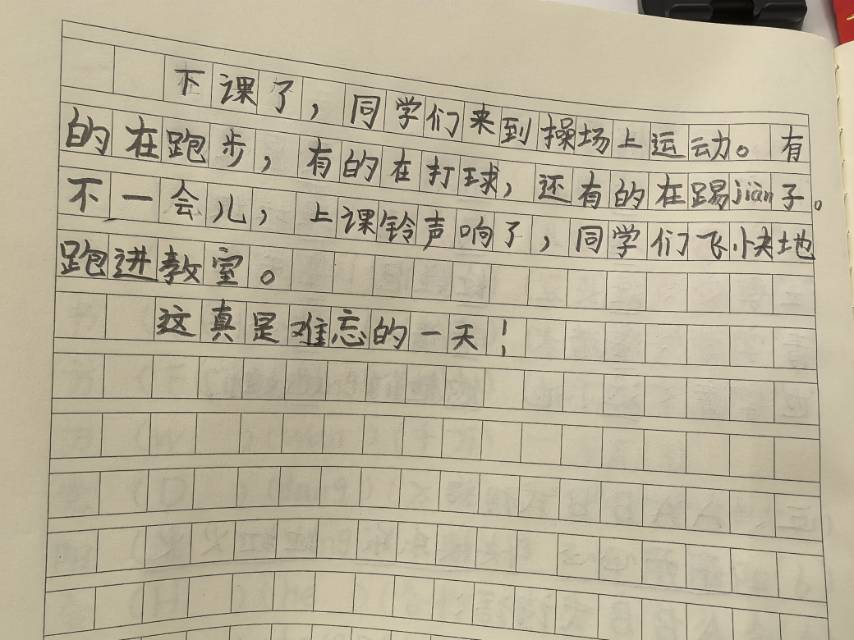 下课了，同学们来到操场上运动。有
的在跑步，有的在打球，还有的在踢jiàn子。
不一会儿，上课铃声响了，同学们飞快地
跑进教室。
这真是难忘的一天！